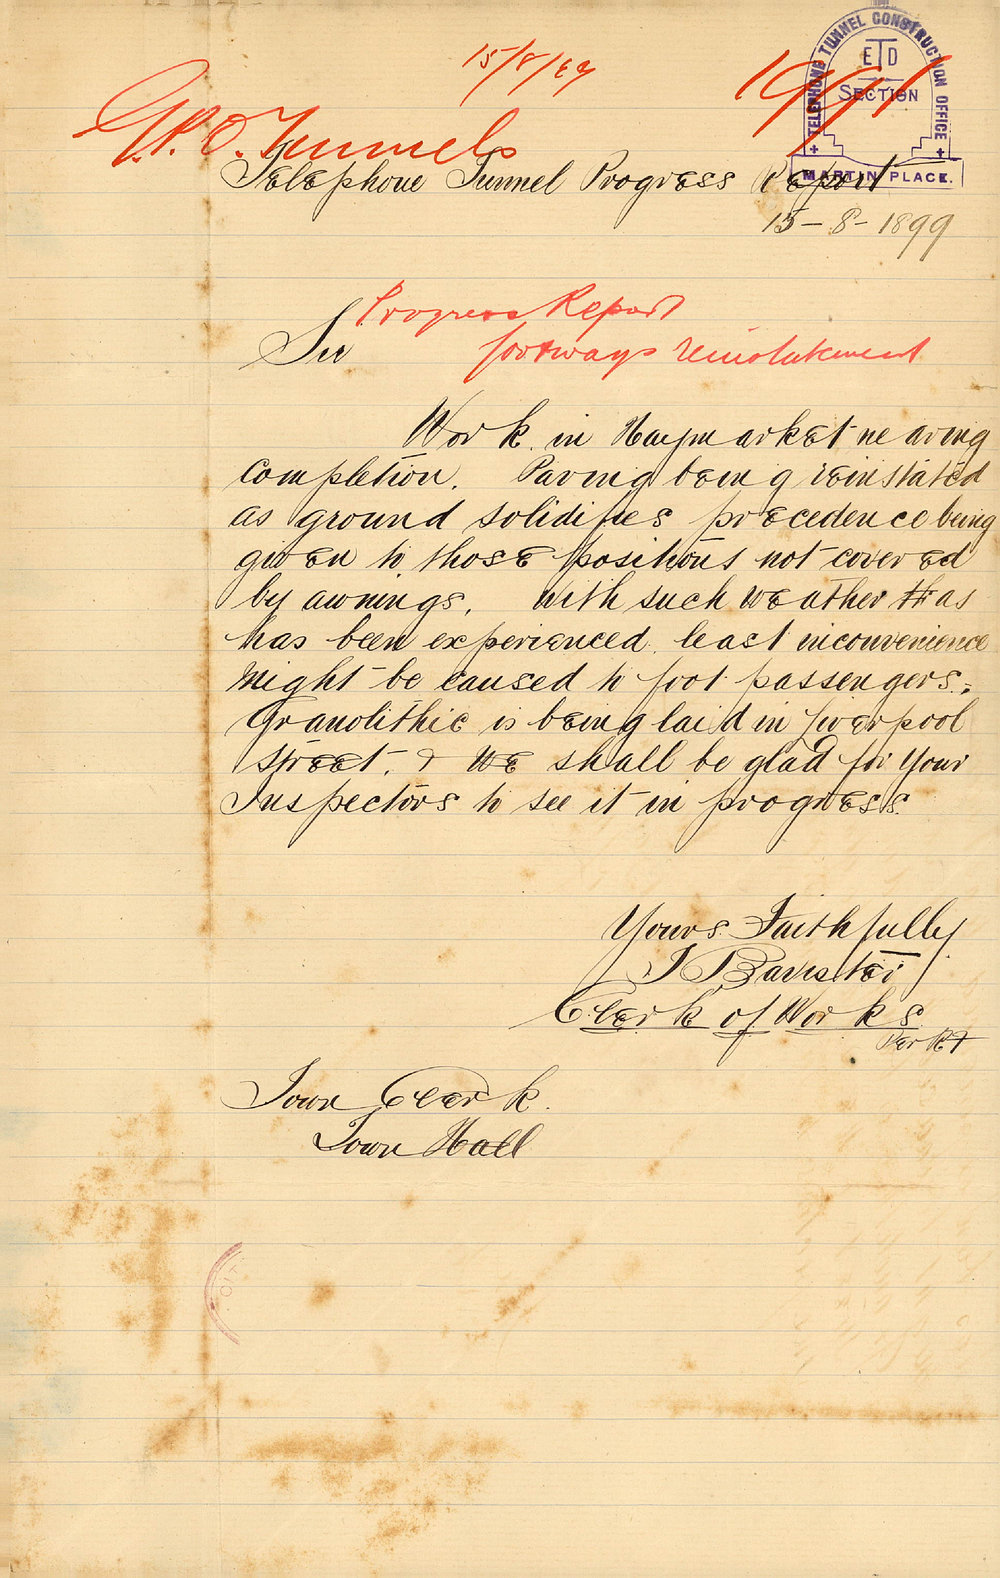 15/8/99
1991
TELEPHONE TUNNEL CONSTRUCTION OFFICE
ETD
SECTION
MARTIN PLACE.
G.P.O. Tunnels
Telephone Tunnel Progress Report
15-8-1899
Progress Report
Sir
footways reinstatement
Work in Haymarket nearing
completion. Paving being reinstated
as ground solidifies precedence being
given to those positions not covered
by awnings. With such weather as
has been experienced least inconvenience
might be caused to foot passengers.
Granolithic is being laid in Liverpool
Street. & we shall be glad for your
Inspectors to see it in progress.
Yours Faithfully
J Bavister
Clerk of Works
Per
Town Clerk.
Town Hall